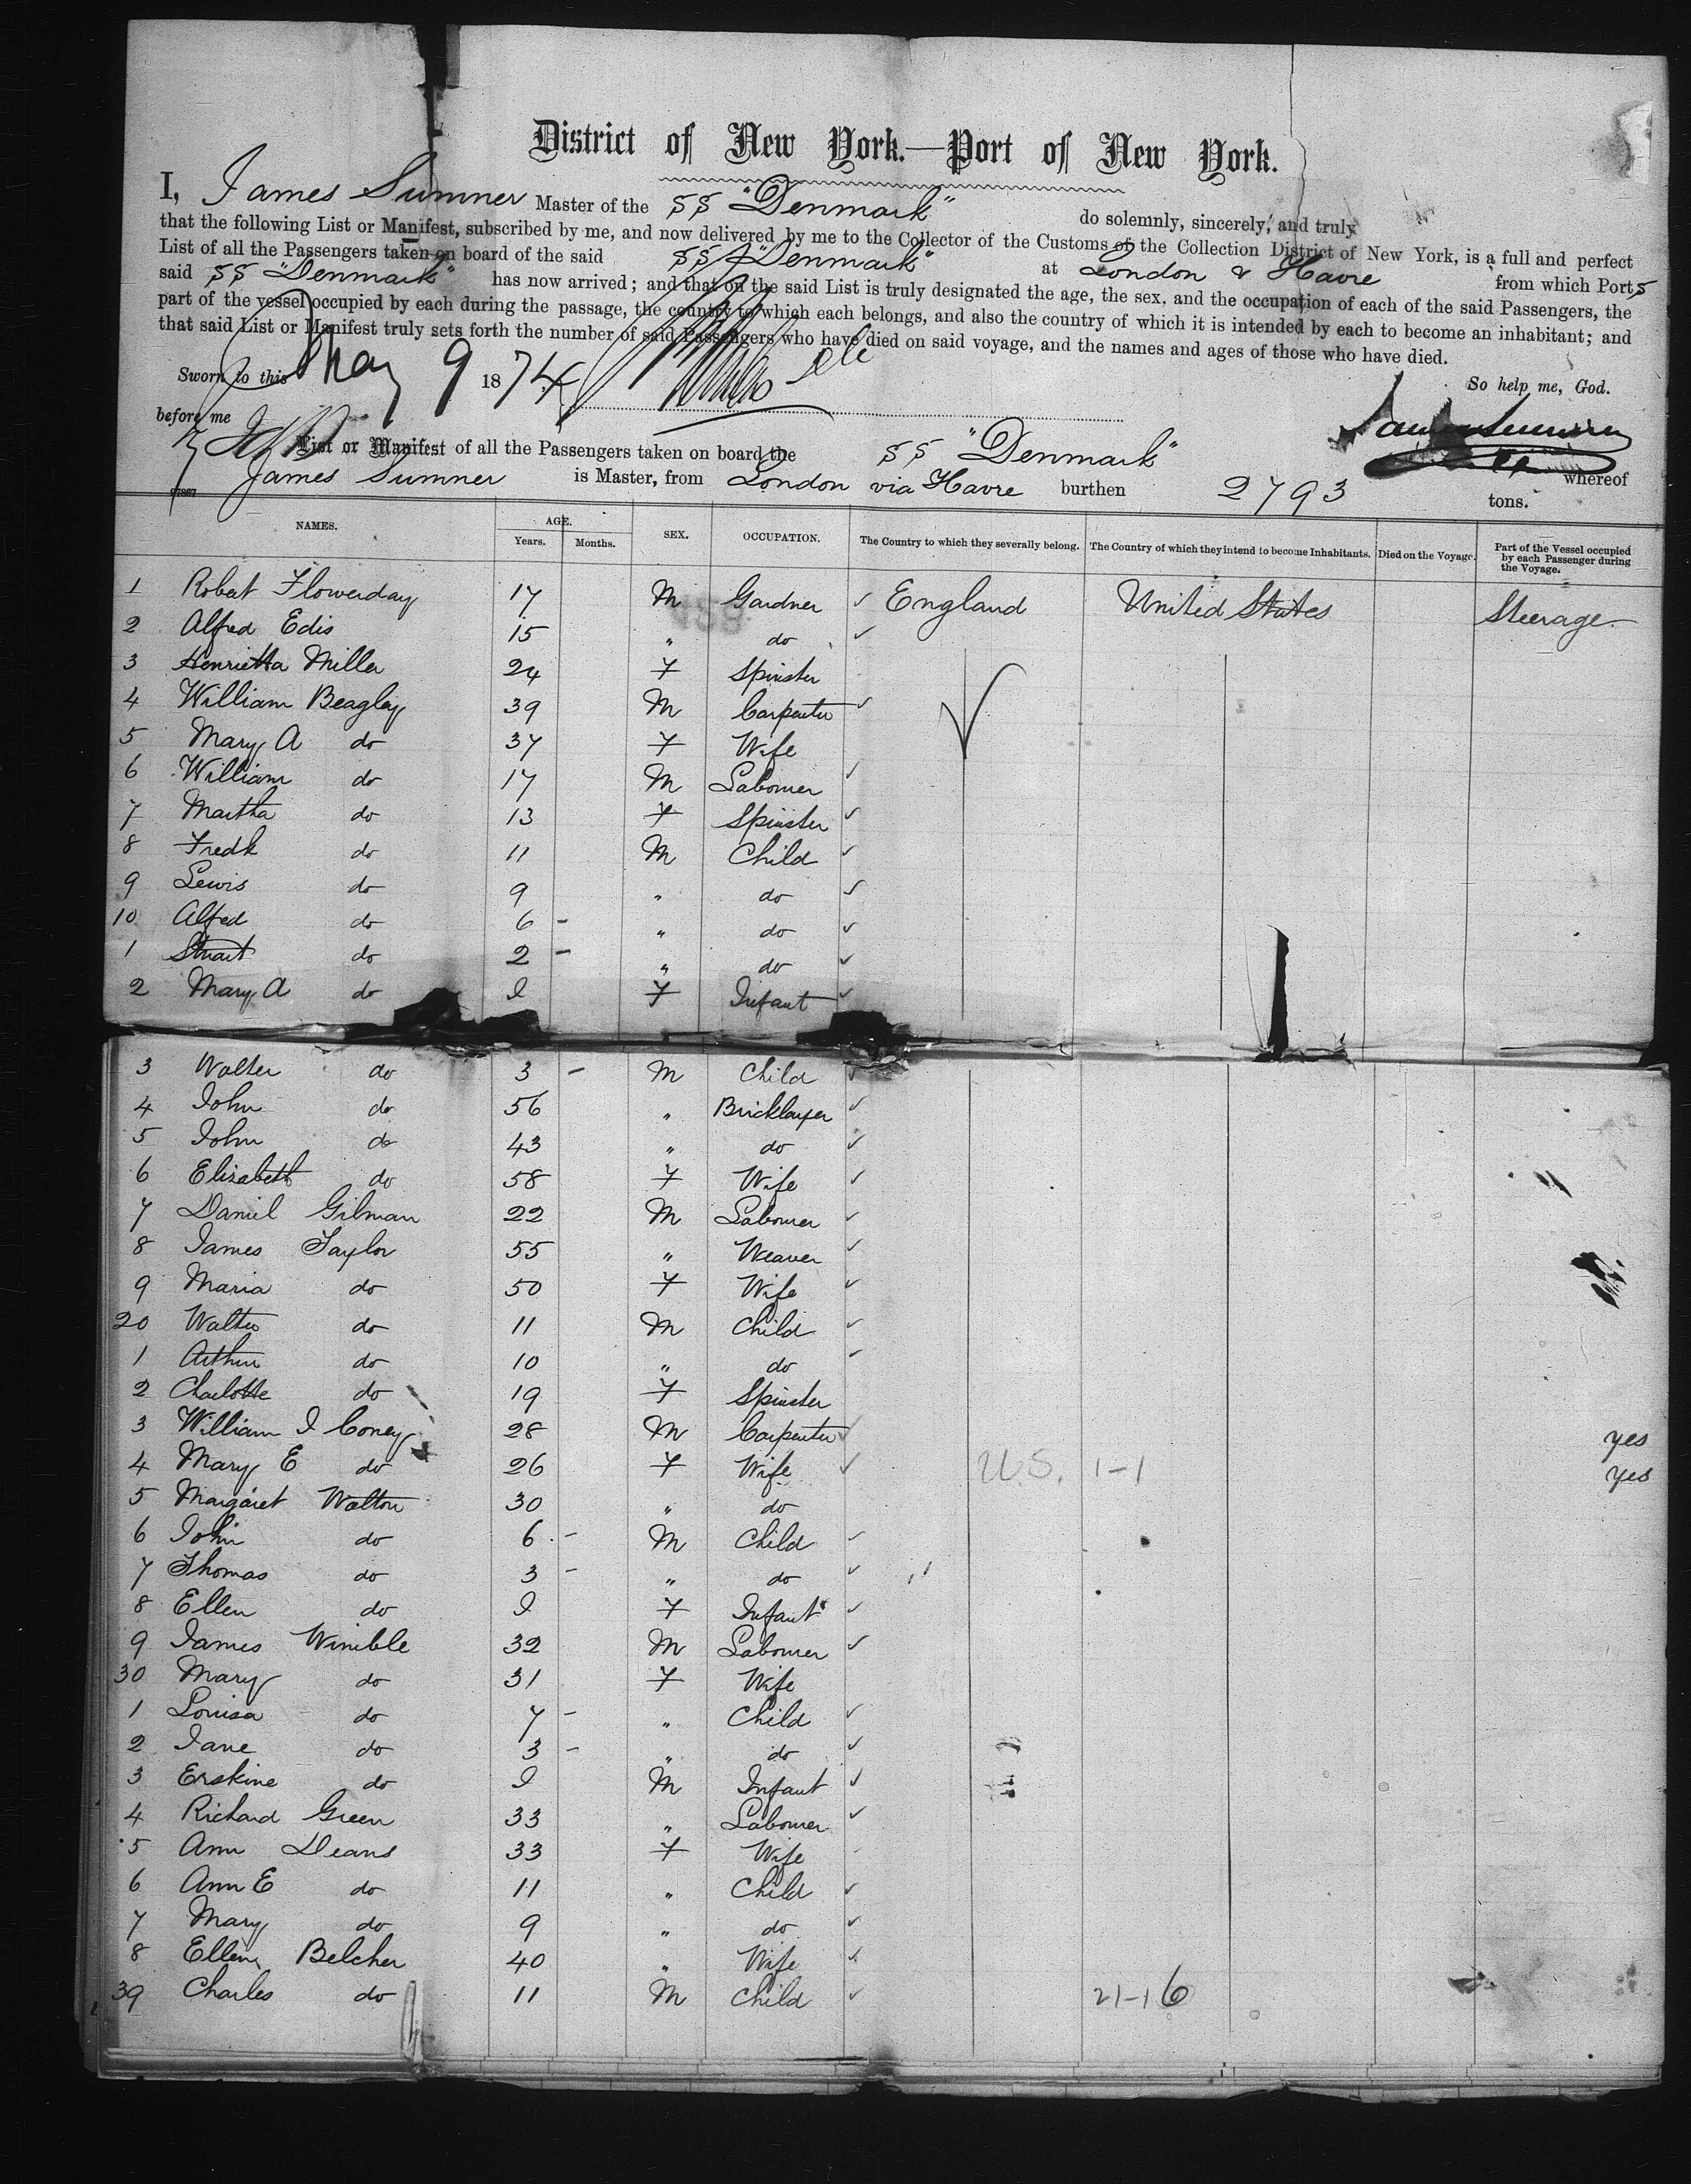 District of New York.—Port of New York.
I, James Sumner Master of the SS "Denmark" do solemnly, sincerely, and truly
that the following List or Manifest, subscribed by me, and now delivered by me to the Collector of the Customs of the Collection District of New York, is a full and perfect
List of all the Passengers taken on board of the said SS "Denmark" at London & Havre from which Ports
said SS "Denmark" has now arrived; and that on the said List is truly designated the age, the sex, and the occupation of each of the said Passengers, the
part of the vessel occupied by each during the passage, the country to which each belongs, and also the country of which it is intended by each to become an inhabitant; and
that said List or Manifest truly sets forth the number of said Passengers who have died on said voyage, and the names and ages of those who have died.
Sworn to this May 9 1874 So help me, God.
before me
List or Manifest of all the Passengers taken on board the SS "Denmark" whereof
James Sumner is Master, from London via Havre burthen 2793 tons.
NAMES. AGE. Years. Months. SEX. OCCUPATION. The Country to which they severally belong. The Country of which they intend to become Inhabitants. Died on the Voyage. Part of the Vessel occupied by each Passenger during the Voyage.
1 Robert Flowerday 17 M Gardner England United States Steerage
2 Alfred Edis 15 " do
3 Henrietta Miller 24 F Spinster
4 William Beagley 39 M Carpenter
5 Mary A do 37 F Wife
6 William do 17 M Labourer
7 Martha do 13 F Spinster
8 Fredk do 11 M Child
9 Lewis do 9 " do
10 Alfred do 6 - " do
1 Stuart do 2 - " do
2 Mary A do I F Infant
3 Walter do 3 - M Child
4 John do 56 " Bricklayer
5 John do 43 " do
6 Elizabeth do 58 F Wife
7 Daniel Gilman 22 M Labourer
8 James Taylor 55 " Weaver
9 Maria do 50 F Wife
20 Walter do 11 M Child
1 Arthur do 10 " do
2 Charlotte do 19 F Spinster
3 William J Coney 28 M Carpenter yes
4 Mary E do 26 F Wife U.S. 1-1 yes
5 Margaret Walton 30 " do
6 John do 6 - M Child
7 Thomas do 3 - " do
8 Ellen do I F Infant
9 James Wimble 32 M Labourer
30 Mary do 31 F Wife
1 Louisa do 7 - " Child
2 Jane do 3 - " do
3 Erskine do I M Infant
4 Richard Green 33 " Labourer
5 Ann Deans 33 F Wife
6 Ann E do 11 " Child
7 Mary do 9 " do
8 Ellen Belcher 40 " Wife
39 Charles do 11 M Child 21-16